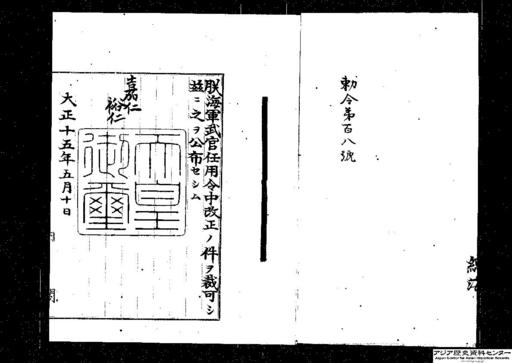 勅令第百八號
朕海軍武官任用令中改正ノ件ヲ裁可シ
茲ニ之ヲ公布セシム
嘉仁
裕仁
天皇
御璽
大正十五年五月十日
内閣
アジア歴史資料センター
Japan Center for Asian Historical Records